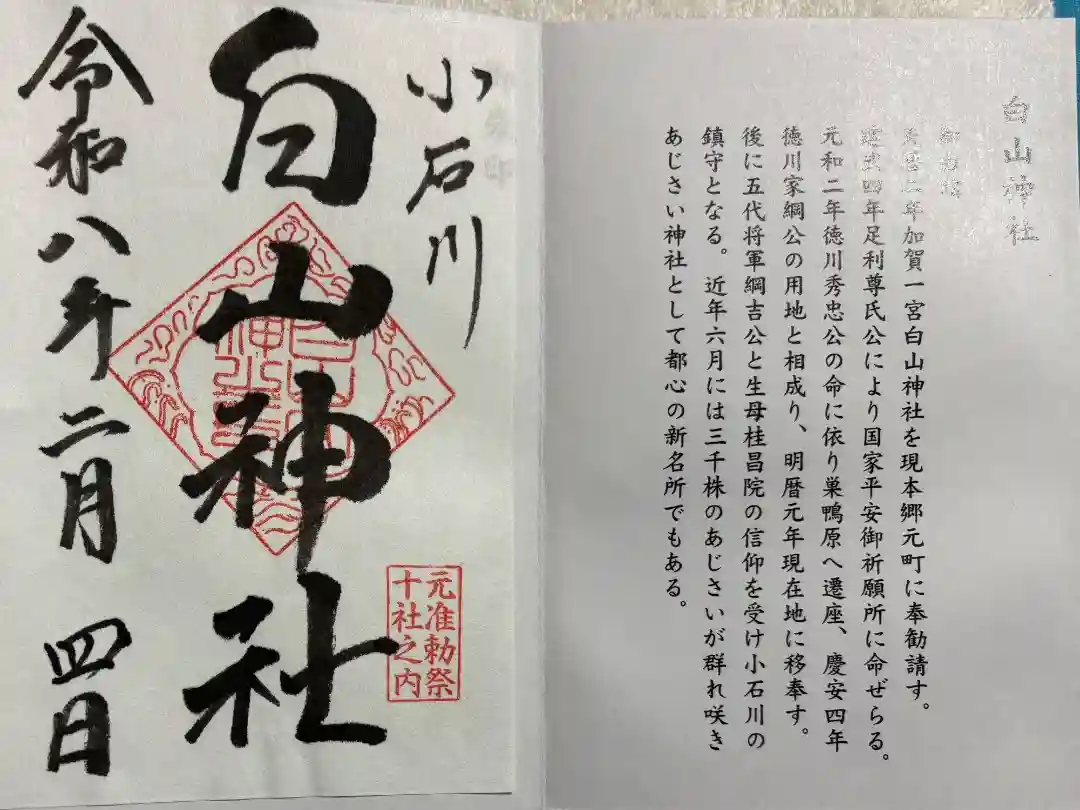 白山神社
御由緒
天暦二年加賀一宮白山神社を現本郷元町に奉勧請す。
建武四年足利尊氏公により国家平安御祈願所に命ぜらる。
元和二年徳川秀忠公の命に依り巣鴨原へ遷座、慶安四年
徳川家綱公の用地と相成り、明暦元年現在地に移奉す。
後に五代将軍綱吉公と生母桂昌院の信仰を受け小石川の
鎮守となる。近年六月には三千株のあじさいが群れ咲き
あじさい神社として都心の新名所でもある。
小石川
元准勅祭
十社之内
白山神社
令和八年二月四日